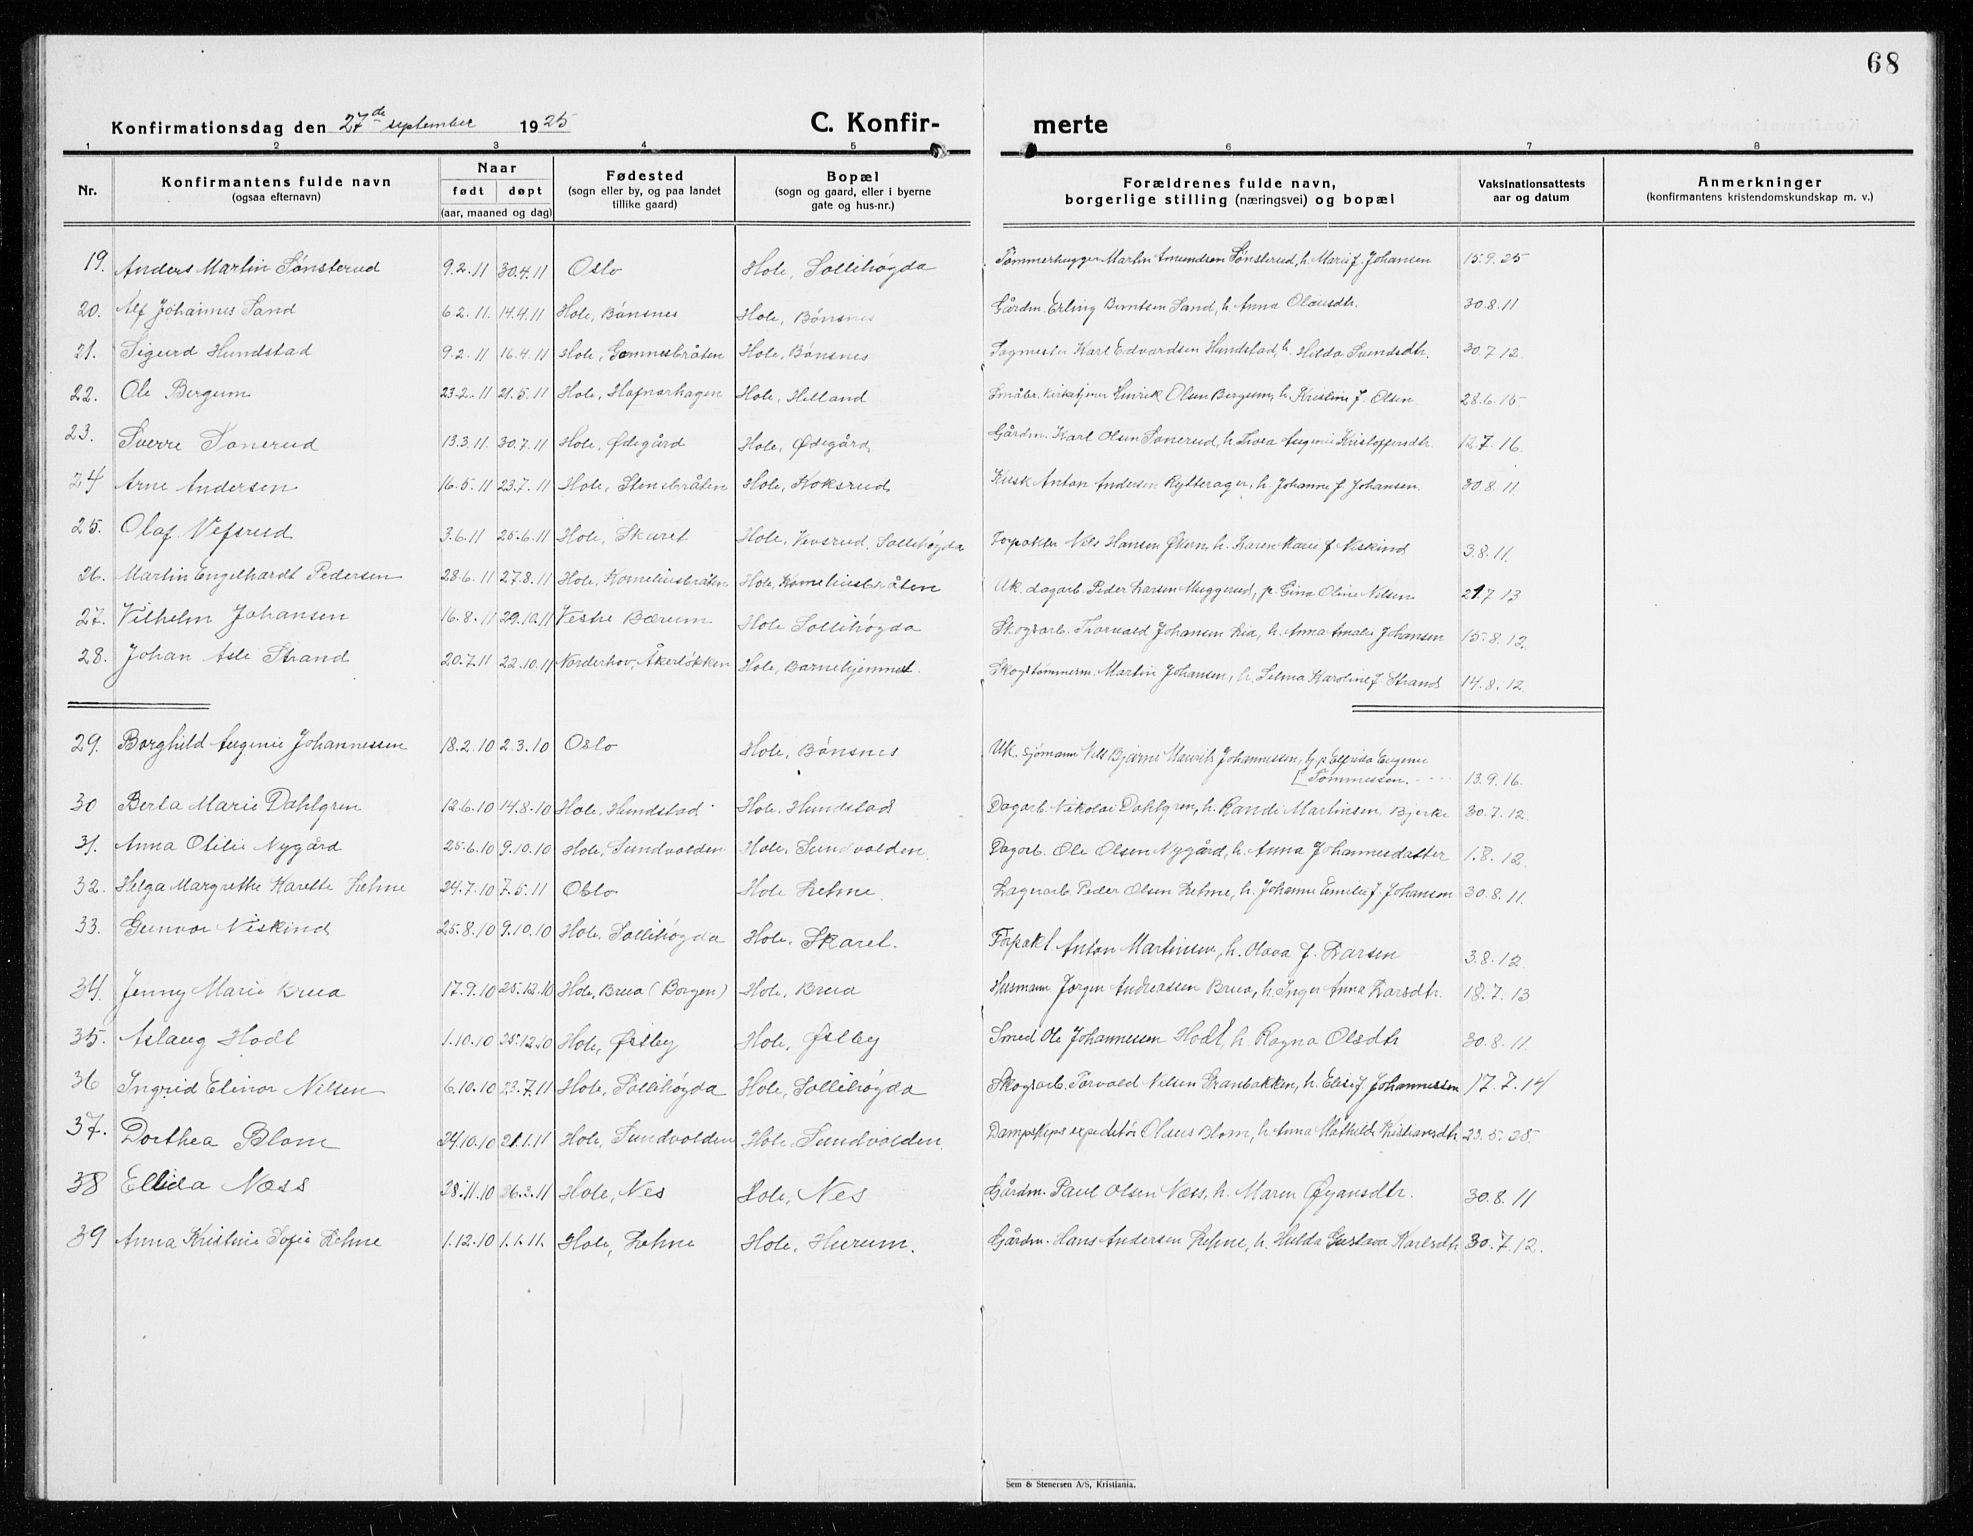 68
Konfirmationsdag den 27de september 1925 C. Konfir- merte
1 2 3 4 5 6 7 8
Nr. Konfirmantens fulde navn (ogsaa efternavn) Naar født døpt (aar, maaned og dag) Fødested (sogn eller by, og paa landet tillike gaard) Bopæl (sogn og gaard, eller i byerne gate og hus-nr.) Forældrenes fulde navn, borgerlige stilling (næringsvei) og bopæl Vaksinationsattests aar og datum Anmerkninger (konfirmantens kristendomskundskap m. v.)
19. Anders Martin Sønsterud 9.2.11 30.4.11 Oslo Hole, Sollihøgda Tømmerhugger Martin Amundsen Sønsterud, h. Marie f. Johansen 15.9.25
20. Alf Johannes Sand 6.2.11. 14.4.11 Hole, Bønsnes Hole, Bønsnes Gårdm. Erling Berntsen Sand, h. Anna Olausdtr. 30.8.11
21. Sigurd Hundstad 9.2.11 16.4.11 Hole, Gomnesbråten Hole, Bønsnes Sagmester Karl Edvardsen Hundstad, h. Hilda Svendsdtr. 30.7.12.
22. Ole Bergum 23.2.11 21.5.11 Hole, Hafnorhagen Hole, Helland Småbr. kirketjener Henrik Olsen Bergum, h. Kristine f. Olsen 28.6.15
23. Sverre Sonerud 13.3.11. 30.7.11 Hole, Ødegård Hole, Ødegård Gårdm. Karl Olsen Sonerud, h. Thora Augenie Kristoffersdtr. 12.7.16
24 Arne Andersen 16.5.11 23.7.11 Hole, Stensbråten Hole, Koksrud Kusk Anton Andersen Rytterager, h. Johanne f. Johansen. 30.8.11.
25. Olaf Vefsrud 3.6.11 25.6.11 Hole, Skaret Hole, Vevsrud, Sollihøgda Forpakter Nils Hansen Økern, h. Karen Marie f. Niskind 3.8.11.
26. Martin Engelhardt Pedersen 28.6.11 27.8.11 Hole, Korneliusbråten Hole, Korneliusbråten Uk. dagarb. Peder Larsen Muggerud, p. Gina Oline Nilsen 21.7.13
27. Vilhelm Johansen 16.8.11 29.10.11 Vestre Bærum Hole Sollihøgda Skogsarb. Thorvald Johansen Lia, h. Anna Amalie Johansen 15.8.12.
28. Johan Asle Strand 20.7.11 22.10.11 Norderhov, Åkerløkken Hole, Barnehjemmet. Skogstømmerm. Martin Johansen, h. Selma Karoline f. Strand 14.8.12.
29. Borghild Augenie Johannessen 18.2.10 2.3.10 Oslo Hole, Bønsnes Uk. sjømann Nils Bjarne Johannessen, p. Elfrida Eugenie
[Tommessen. 13.9.16.
30 Berta Marie Dahlgren 12.6.10 14.8.10 Hole, Hundstad Hole, Hundstad Dagarb. Nikolai Dahlgren, h. Randi Martinsen Bjerke 30.7.12.
31. Anna Otilie Nygård 25.6.10 9.10.10 Hole, Sundvolden Hole, Sundvolden. Dagarb. Ole Olsen Nygård, h. Anna Johannesdatter 1.8.12.
32. Helga Margrethe Karette Lehne 24.7.10 7.5.11 Oslo Hole Lehne. Lagerarb. Peder Olsen Lehne, h. Johanne Emilie f. Johansen 30.8.11.
33. Gunvor Niskind 25.8.10 9.10.10 Hole, Sollihøgda Hole, Skaret. Forpakt Anton Martinsen, h. Olava f. Larsen 3.8.12.
34. Jenny Marie Brua 17.9.10 25.12.10 Hole, Brua (Borgen) Hole, Brua Husmann Jørgen Andreassen Brua, h. Inger Anna Larsdtr. 18.7.13
35. Aslaug Hodt 1.10.10 25.12.10 Hole, Østby Hole, Østby Smed Ole Johannessen Hodt, h. Ragna Olsdtr 30.8.11.
36 Ingrid Elinor Nilsen 6.10.10 23.7.11 Hole, Sollihøgda Hole, Sollihøgda Skogsarb. Torvald Nilsen Granbakken, h. Elise f. Johannessen 17.7.14
37. Dorthea Blom 24.10.10 21.1.11 Hole, Sundvolden Hole Sundvolden. Dampskipsexpeditør Olaus Blom, h. Anna Mathilde Kristiansdtr 23.5.25.
38 Ellida Næss 28.11.10 26.3.11 Hole, Nes Hole, Nes Gårdm. Paul Olsen Næss, h. Maren Øyansdtr. 30.8.11
39 Anna Kristine Sofie Lehne 1.12.10 1.1.11. Hole, Lehne Hole, Hurum. Gårdm. Hans Andersen Lehne, h. Hulda Gustava Karlsdtr 30.7.12.
Sem & Stenersen A/S, Kristiania.